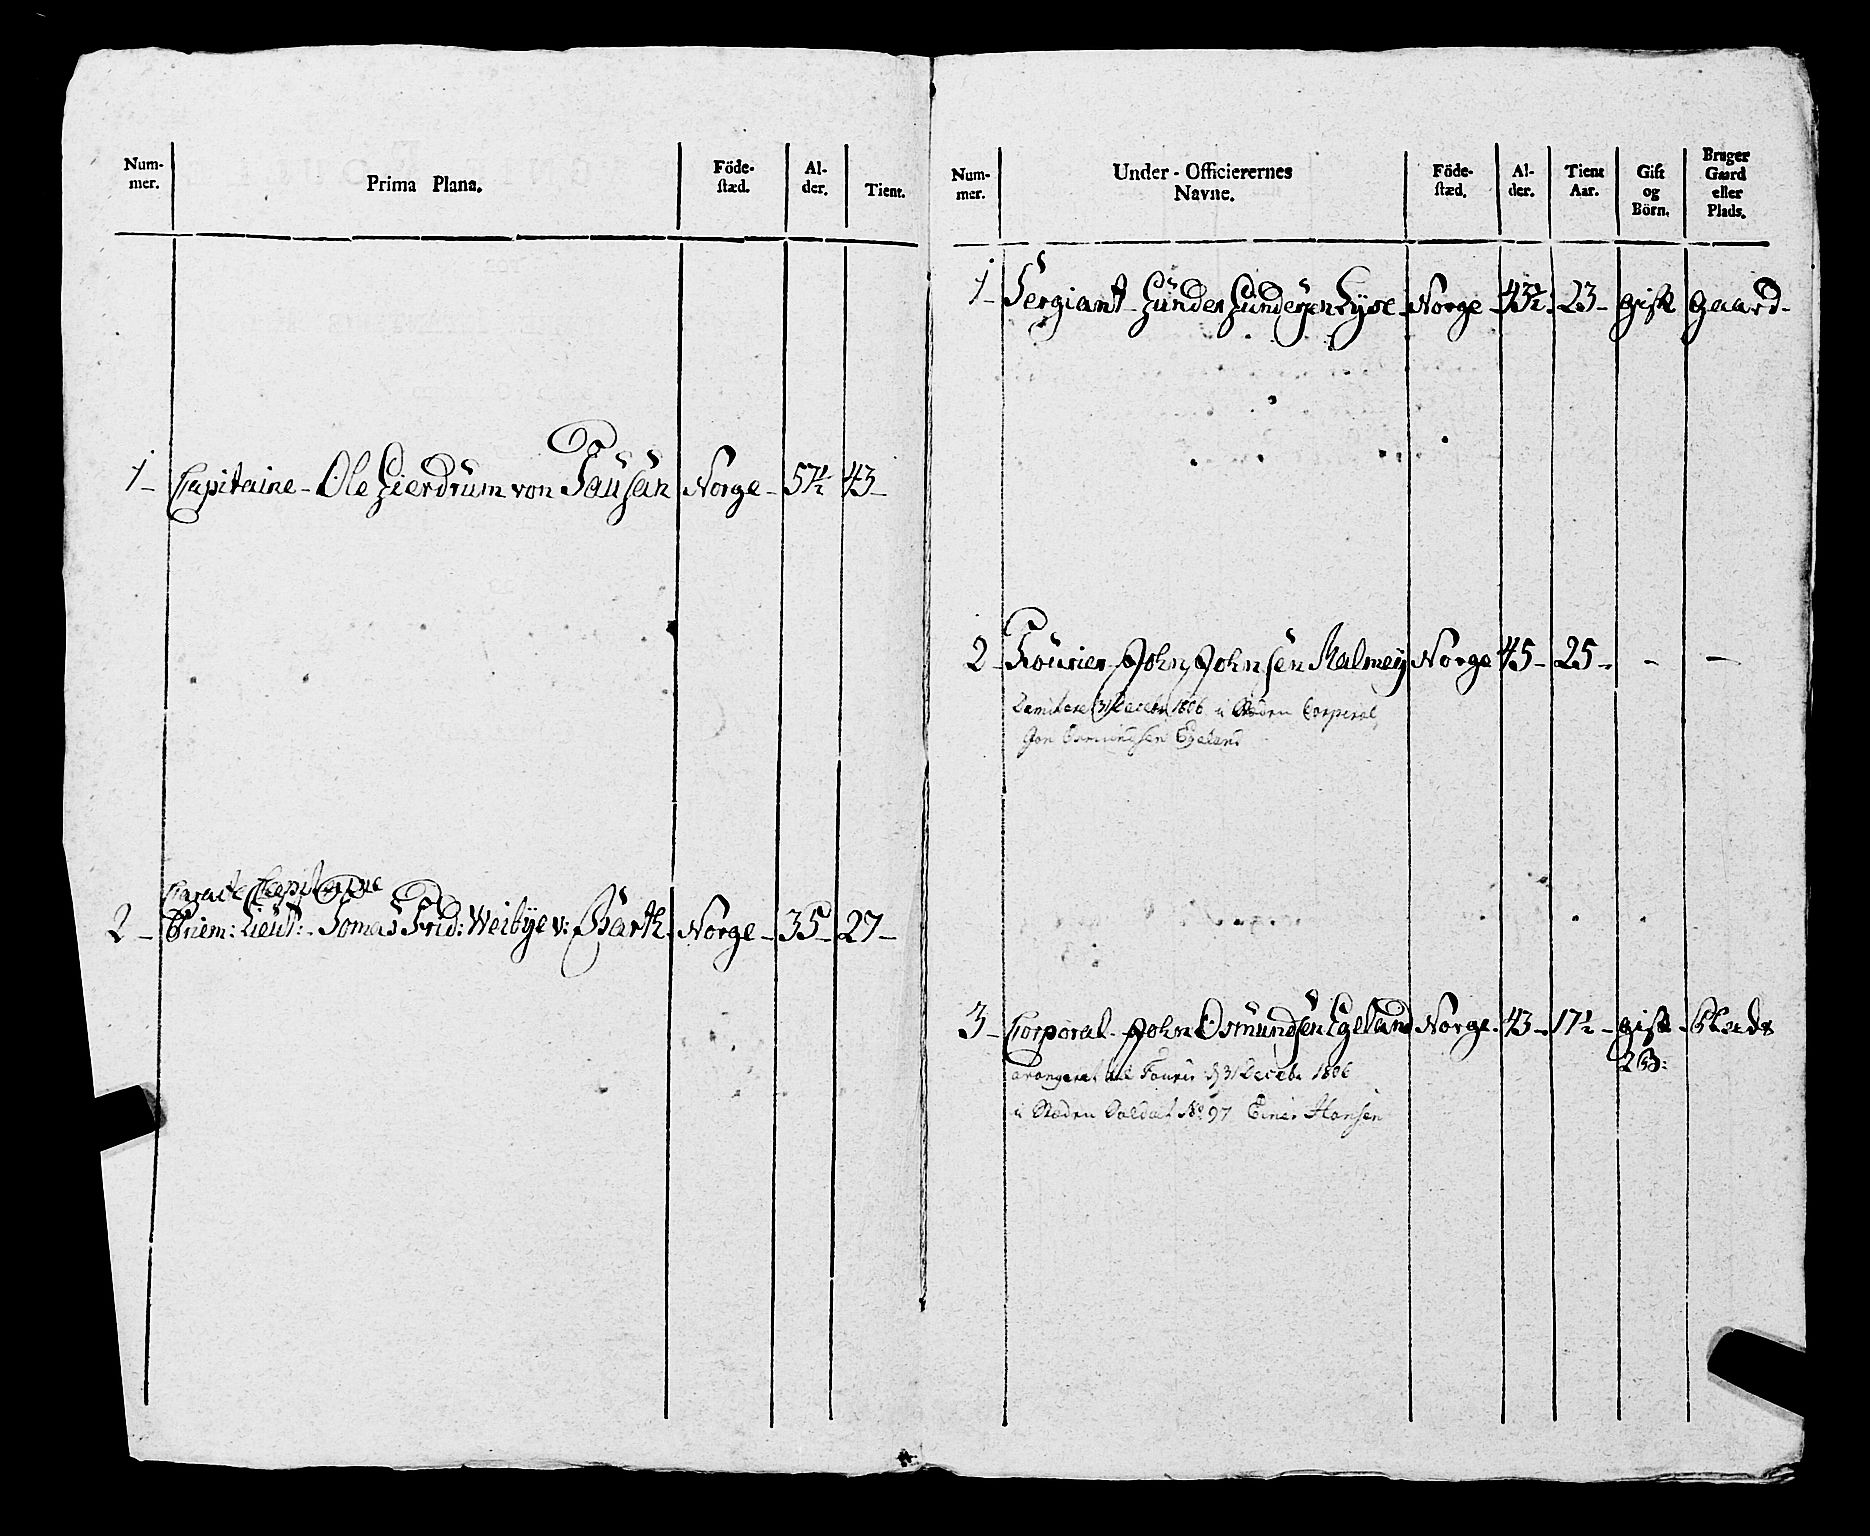 Num-
mer.
Prima Plana.
Föde-
stæd.
Al-
der.
Tient.
1 - Capitaine - Ole Gierdrum von Tausan Norge - 57½ 43 -
Caract: Capitaine
2 - Priem: Lieut: - Tomas Frid: Weibye v: Barth. Norge - 35 - 27 -
Num-
mer.
Under-Officierernes
Navne.
Föde-
stæd.
Al-
der.
Tient
Aar.
Gift
og
Börn.
Bruger
Gaard
eller
Plads.
1 - Sergiant - Gunder Gundersen Lyse - Norge - 43½ 23 - gift gaard -
2 - Fourier - John Johnsen Malmey Norge 45 - 25 - - -
31 Decebr 1806 i Steden Corporal
Jon Osmundsen Egeland
3 - Corporal - John Osmundsen Egeland Norge - 43 - 17½ - gift -
2 B:
arangeret til Fourer d 31 Decebr 1806
i Steden Soldat No 97 Einer Hansen